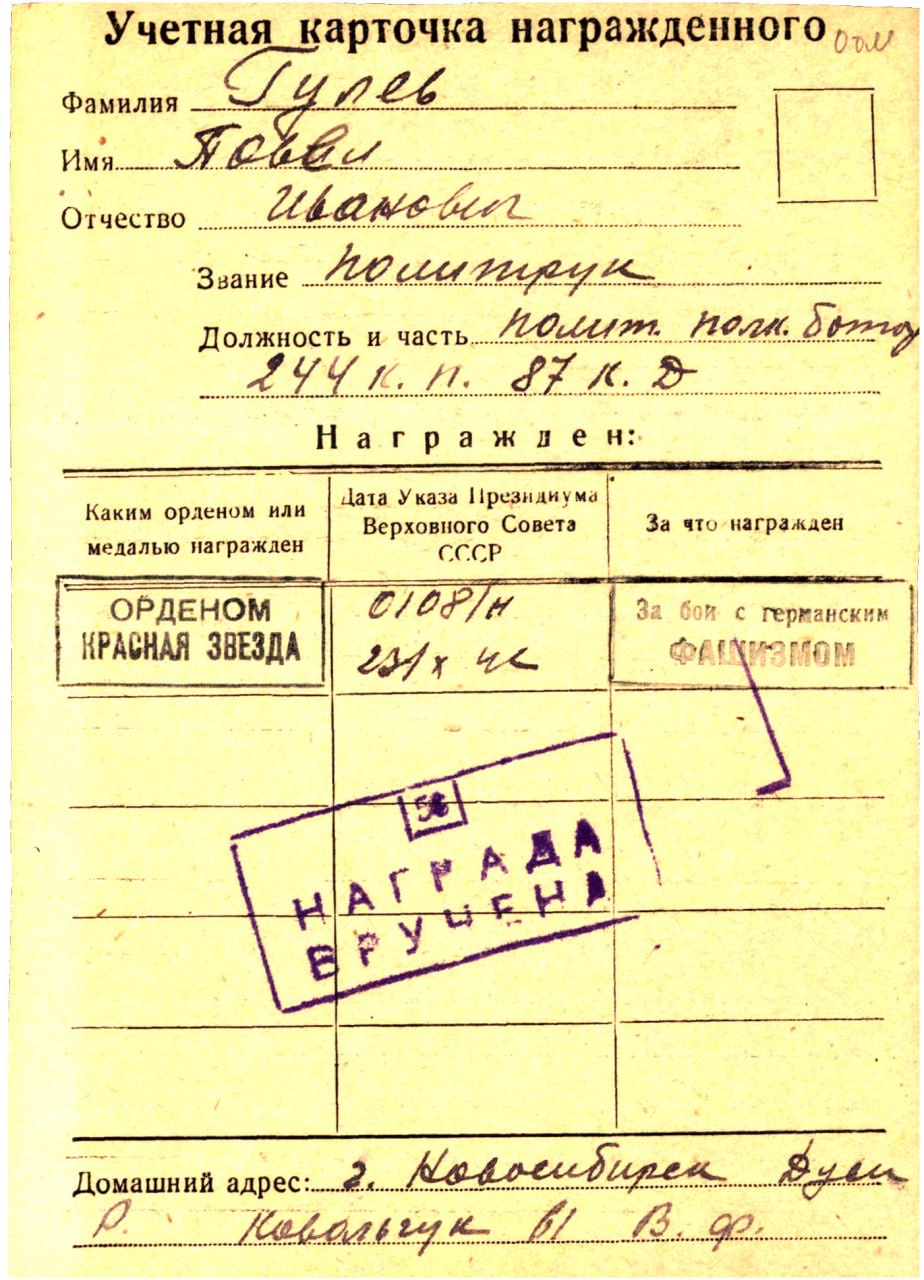 Учетная карточка награжденного
Фамилия Гулев
Имя Павел
Отчество Иванович
Звание политрук
Должность и часть полит. полк.
244 к. п. 87 к. Д
Награжден:
Каким орденом или медалью награжден
Дата Указа Президиума Верховного Совета СССР
За что награжден
ОРДЕНОМ
КРАСНАЯ ЗВЕЗДА
0108/н
За бои с германским
ФАШИЗМОМ
НАГРАДА
ВРУЧЕНА
Домашний адрес: г. Новосибирск
Ковальчук